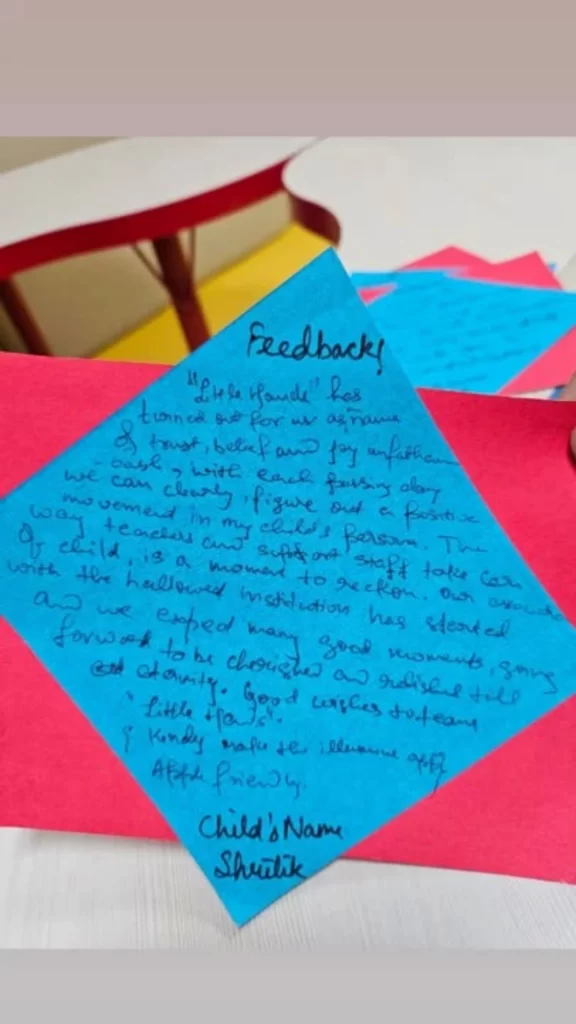 Feedback
"Little Hands" has
turned out for us as name
of trust, belief and joy unfathom
-oable, with each passing day
we can clearly, figure out a positive
movement in my child's person. The
way teachers and support staff take care
of child, is a moment to reckon. Our
with the hallowed institution has started
and we expect many good moments, going
forward to be cherished and relished till
eternity. Good wishes to team
"Little Hands".
Kindly make the app
Apple friendly.
Child's Name
Shrutik